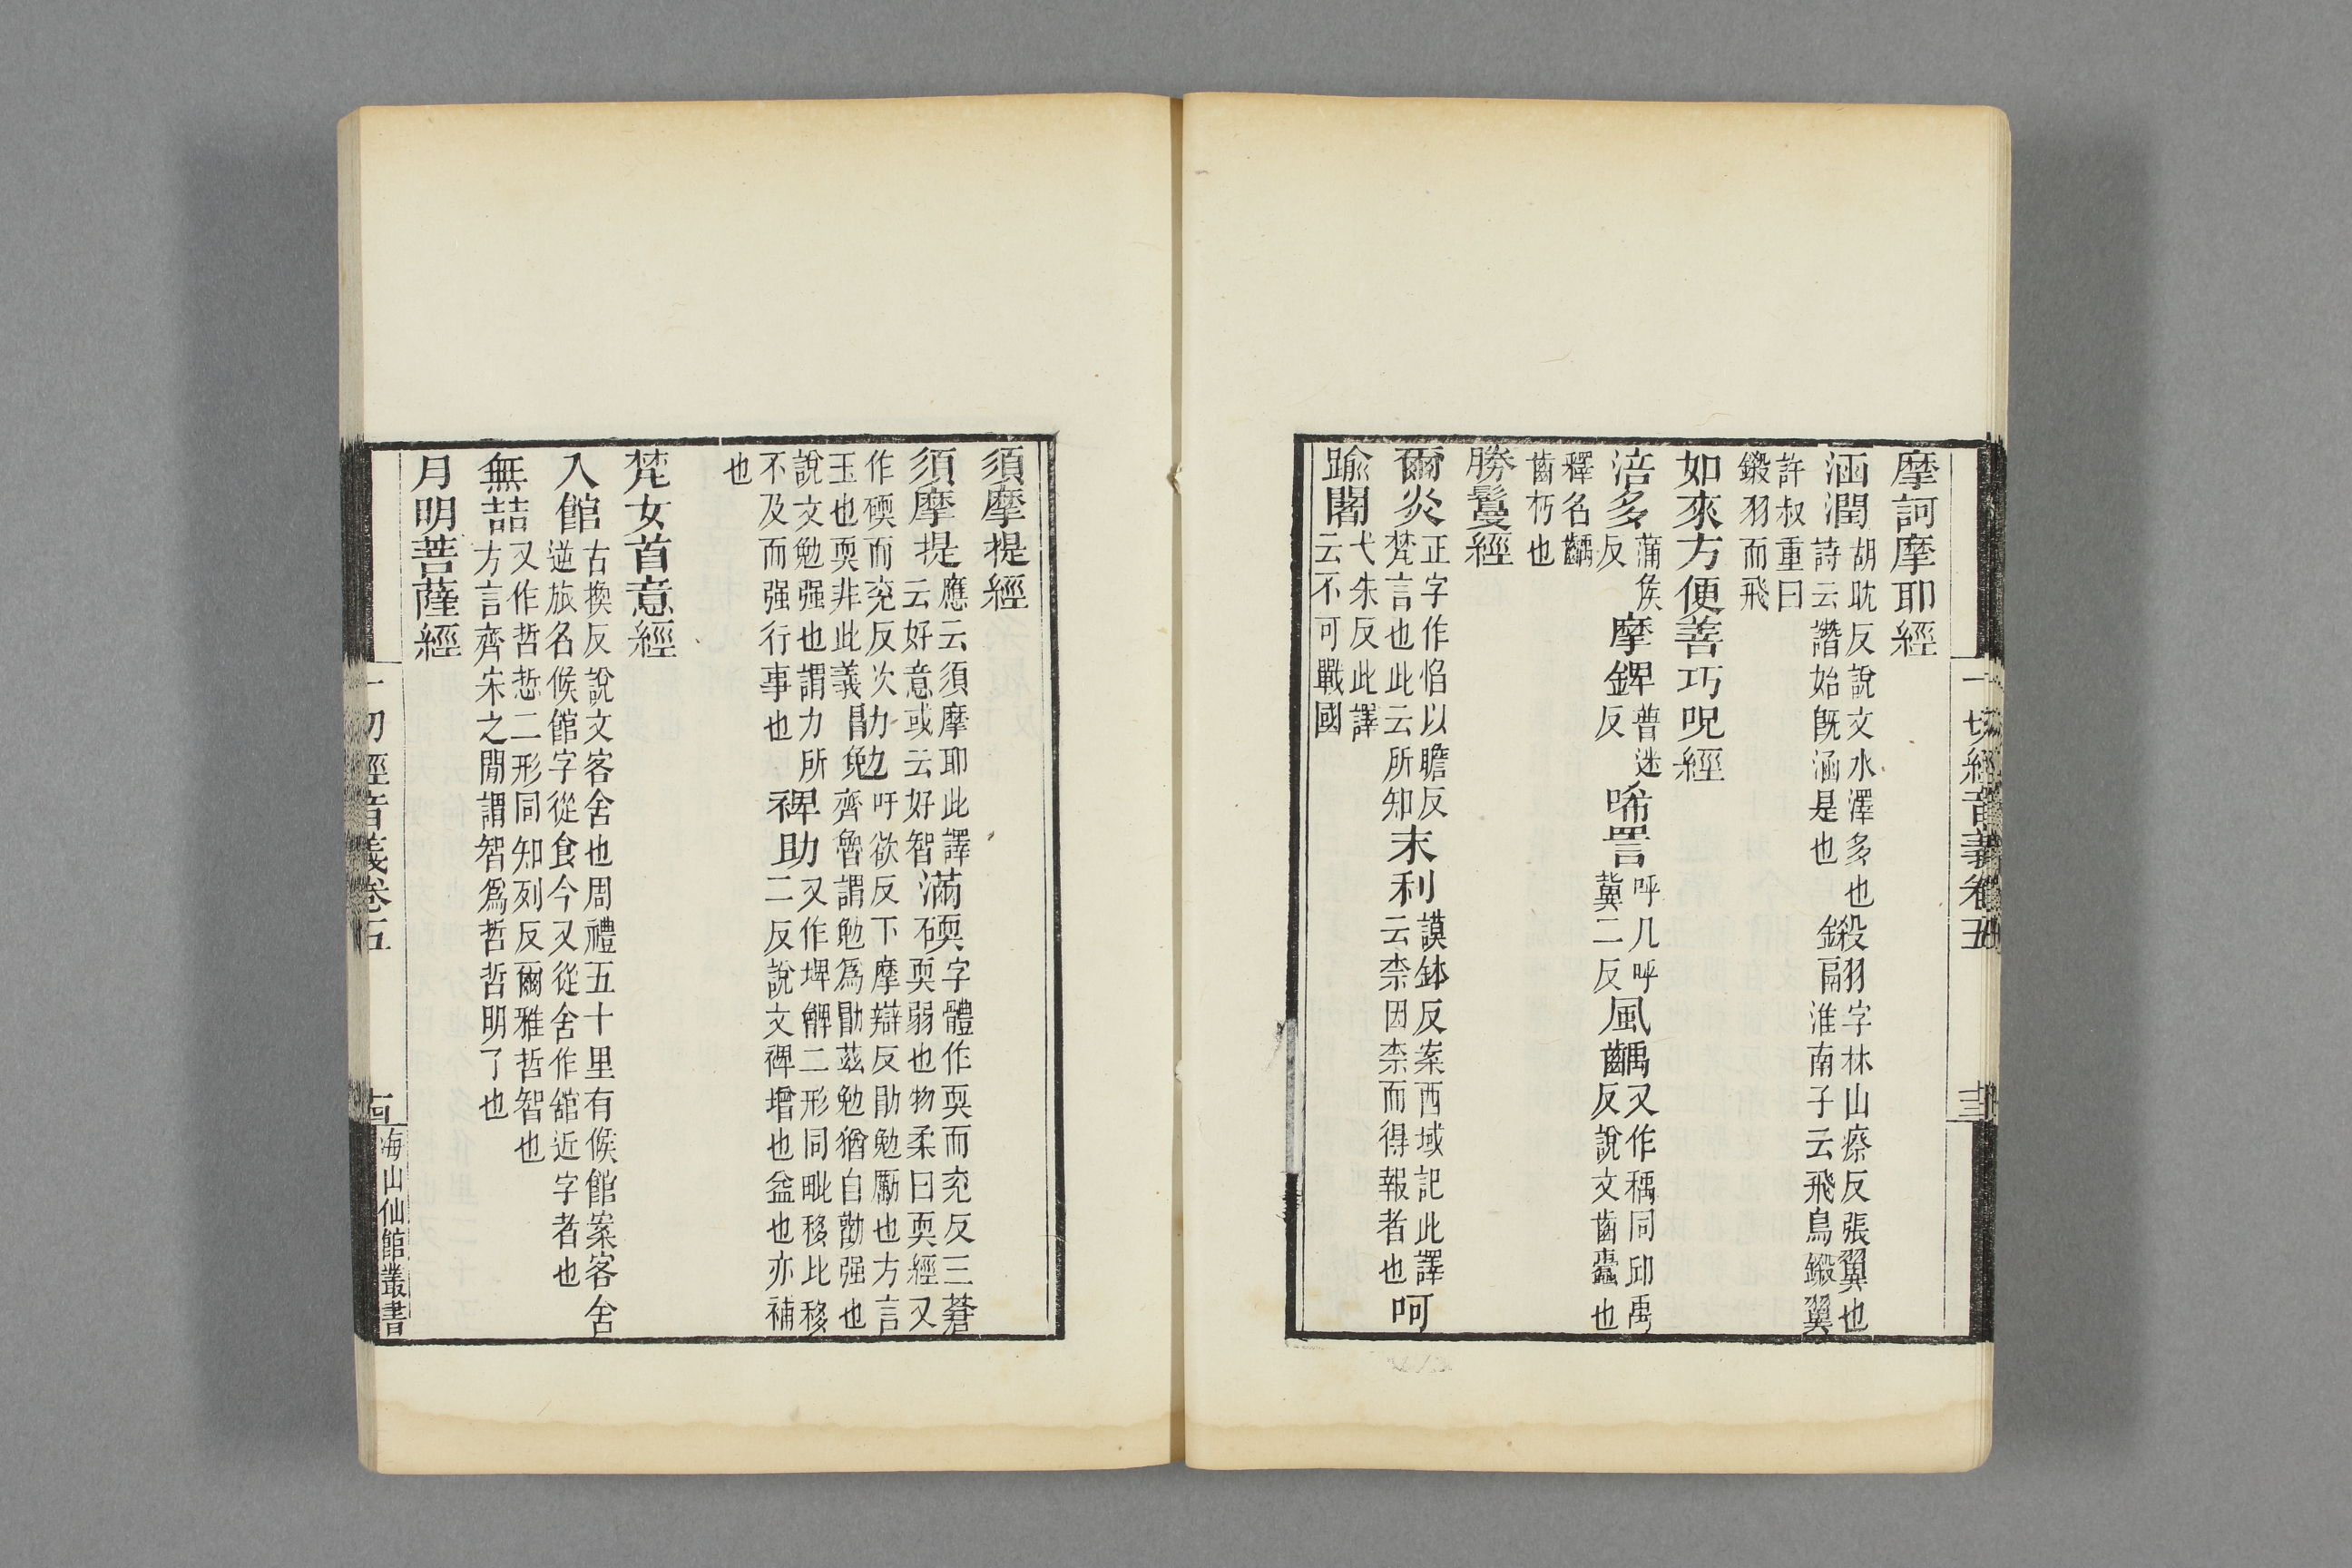 一切經音義卷五
十三
摩訶摩耶經
涵潤胡躭反說文水澤多也詩云譖始旣涵是也鎩翮殺羽字林山瘵反張翼也淮南子云飛鳥鎩翼
許叔重曰鎩羽而飛
如來方便善巧呪經
涪多蒲侯反摩錍普迷反唏詈呼几呼冀二反風齲又作㾺同邱禹反說文齒蠹也
釋名齲齒朽也
勝鬘經
爾炎正字作焰以贍反梵言也此云所知末利謨鉢反案西域記此譯云柰因柰而得報者也呵
踰闍弋朱反此譯云不可戰國
須摩提經
須摩提應云須摩耶此譯云好意或云好智滿碝字體作耎而兖反三蒼耎弱也物柔曰耎經又
作碝而兖反次玉也耎非此義勖勉吁欲反下摩辯反勖勉勵也方言齊魯謂勉爲勖茲勉猶自勸强也
說文勉强也謂力所不及而强行事也裨助又作埤𩩖二形同毗移比移二反說文裨增也益也亦補
也
梵女首意經
入館古換反說文客舍也周禮五十里有候館案客舍逆旅名候館字從食今又從舍作舘近字者也
無喆又作哲悊二形同知列反爾雅哲智也方言齊宋之閒謂智爲哲哲明了也
月明菩薩經
一切經音義卷五
海山仙館叢書